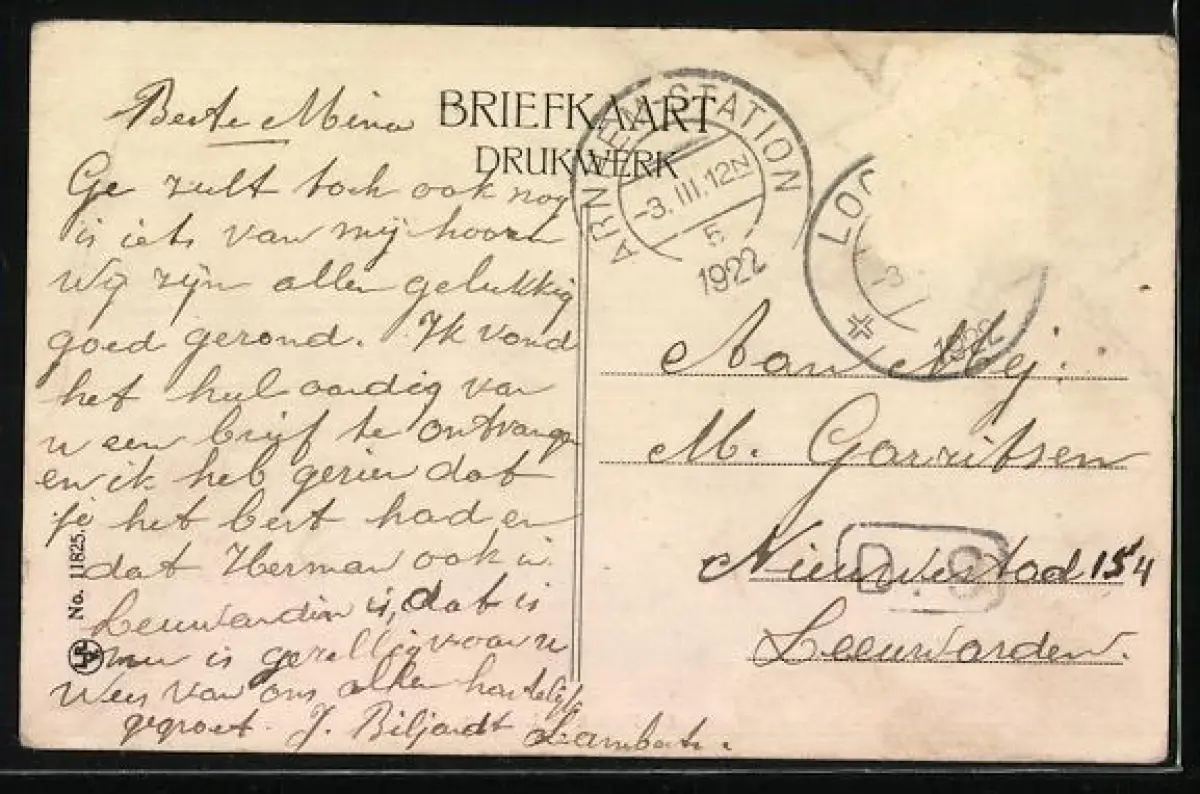 BRIEFKAART
DRUKWERK
Beste Mina
Ge zult toch ook nog
is iets van mij hooren
Wij zijn allen gelukkig
goed gezond. Ik vond
het heel aardig van
u een brief te ontvangen
en ik heb gezien dat
je het best had en
dat Herman ook in
Leeuwarden is, dat is
is gezellig voor u
Wees van ons allen hartelijk
gegroet. J. Biljardt Lambarts.
No. 11825.
ARNHEM-STATION
-3.III.12N
5
1922
LOC
-3
1922
Aan Mej.
M. Garritsen
Nieuwestad 154
D.S
Leeuwarden.